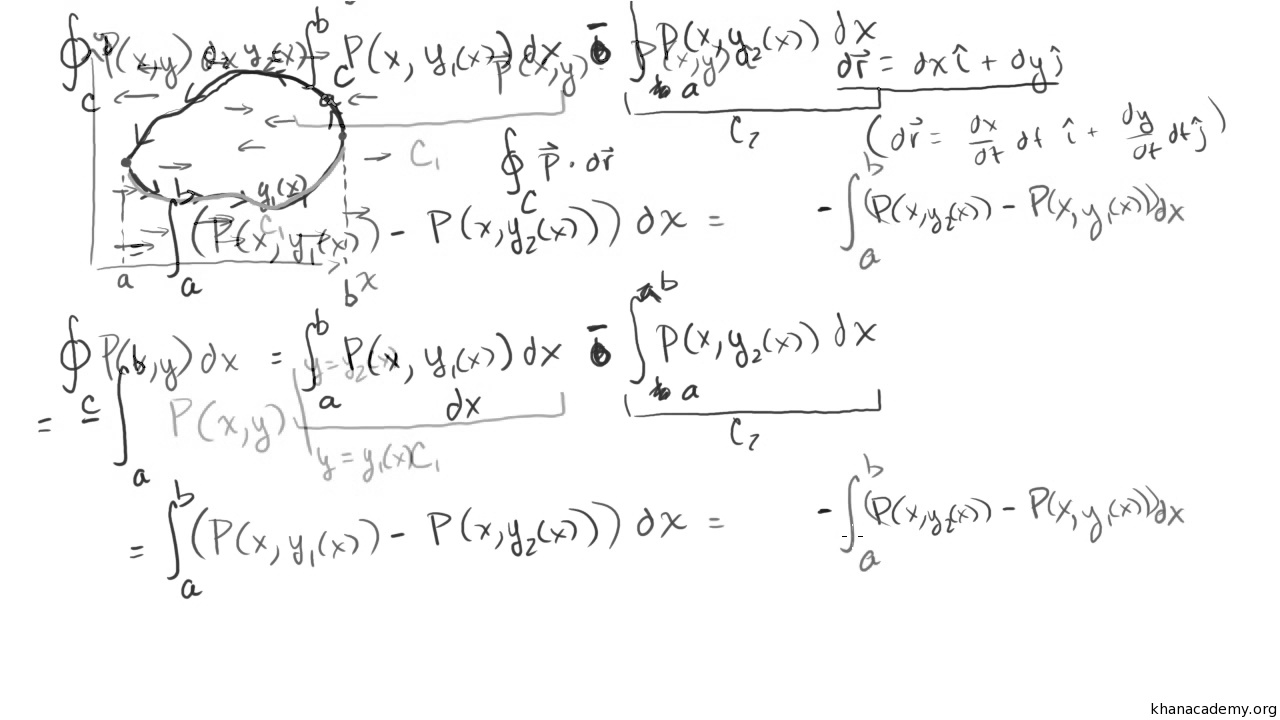 ∮ P(x,y) dx y₂(x) ∫ b P(x, y₁(x)) dx - b ∫ P(x,y₂(x)) dx
C C P(x,y) a dr⃗ = dx î + dy ĵ
C₂ (dr⃗ = dx/dt dt î + dy/dt dt ĵ)
C₁ ∮ P⃗ · dr⃗
C
y₁(x)
C₁
= ∫ₐᵇ (P(x, y₁(x)) - P(x,y₂(x))) dx = - ∫ₐᵇ (P(x,y₂(x)) - P(x,y₁(x))) dx
a b x
∮ P(x,y) dx = ∫ₐᵇ P(x, y₁(x)) dx - ∫ₐᵇ P(x,y₂(x)) dx
C y = y₂(x) C₂
= ∫ₐᵇ P(x,y) | dx
y = y₁(x) C₁
= ∫ₐᵇ (P(x, y₁(x)) - P(x,y₂(x))) dx = - ∫ₐᵇ (P(x,y₂(x)) - P(x,y₁(x))) dx
khanacademy.org